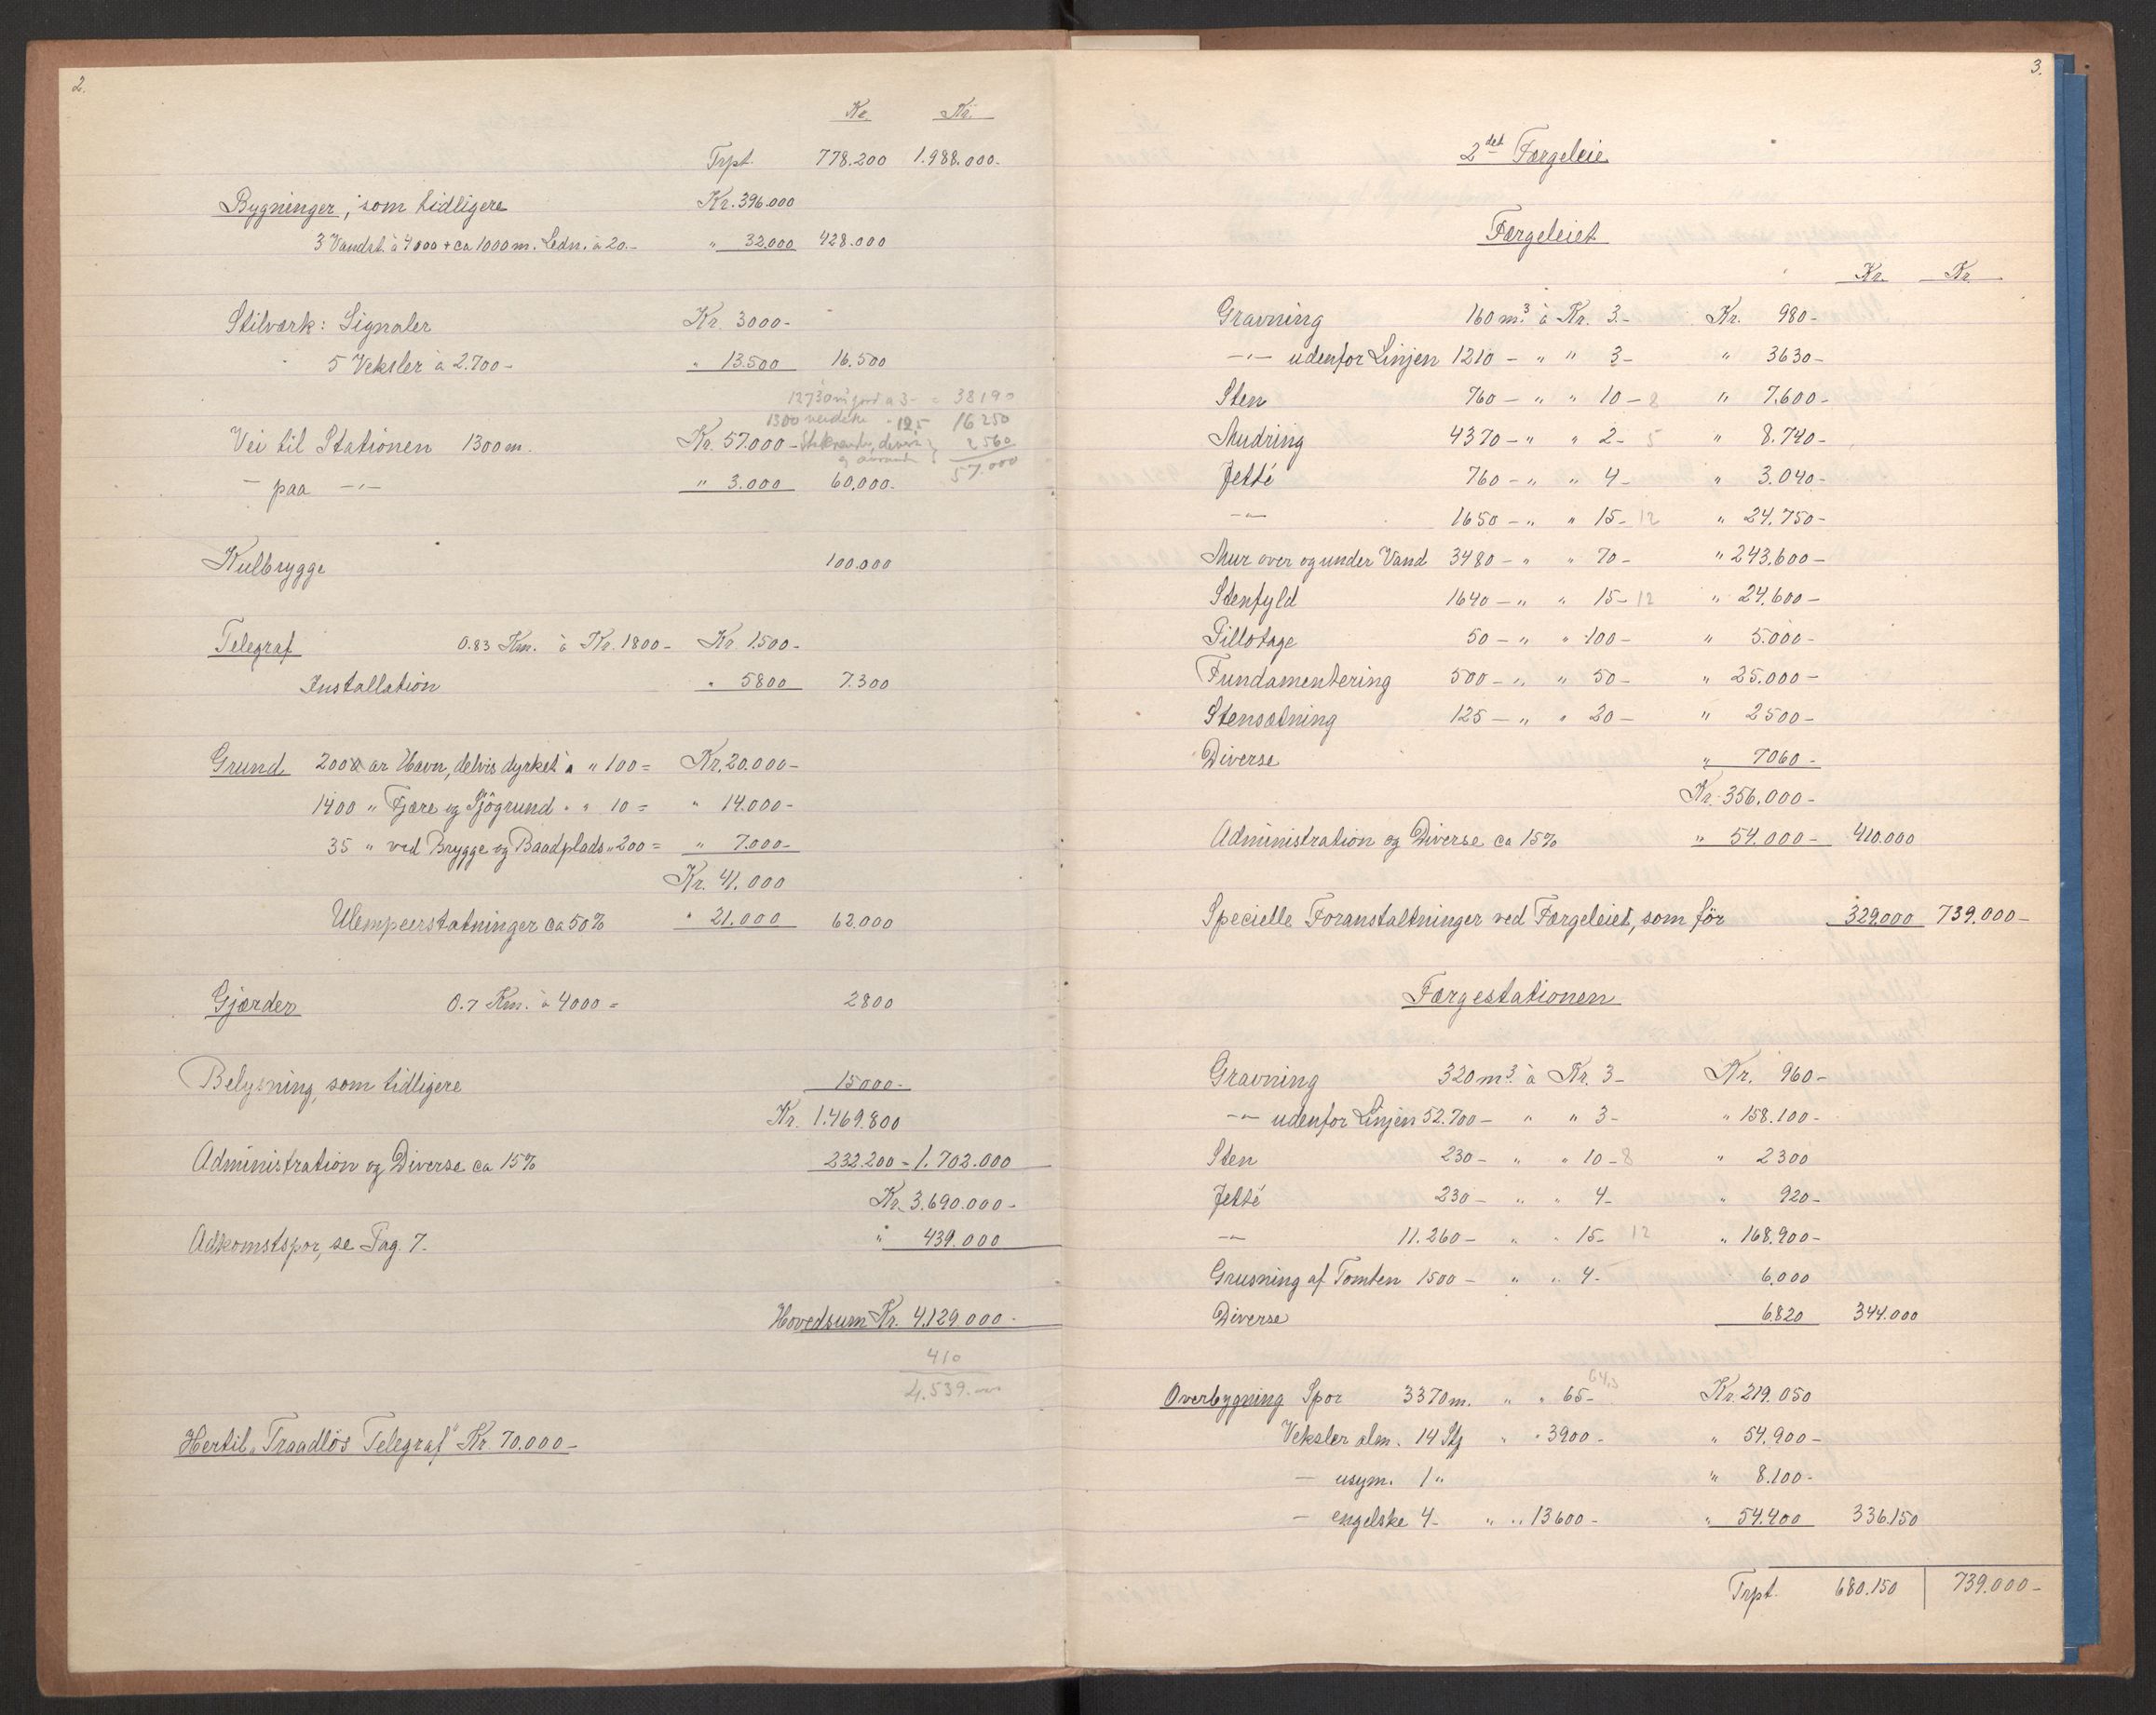 2.
Kr. Kr.
Trpt. 778.200 1.988.000.-
Bygninger, som tidligere Kr. 396.000
3 Vandst. à 4000 + ca 1000 m. Ledn. à 20.- " 32.000 428.000
Stilværk: Signaler Kr. 3000-
5 Veksler à 2.700- " 13.500 16.500
12730 m³ jord a 3- = 38190
1300 veidekke - 12.5 16250
Vei til Stationen 1300 m. Kr. 57.000- Stikrender, diverse 2560
og avrunding 57.000
- paa -"- " 3.000 60.000.-
Kulbrygge 100.000
Telegraf 0.83 Km. à Kr. 1800- Kr. 1.500-
Installation " 5800 7.300
Grund 200 ar Havn, delvis dyrket à " 100 = Kr. 20.000-
1400 " Fjære og Sjögrund " " 10 = " 14.000-
35 " ved Brygge og Baadplads " 200 = " 7.000-
Kr. 41.000
Ulempeerstatninger ca 50% " 21.000 62.000
Gjærder 0.7 Km. à 4000 = 2800
Belysning, som tidligere 15000-
Kr. 1.469.800
Administration og Diverse ca 15% 232.200 = 1.702.000
Kr. 3.690.000-
Adkomstspor, se Pag. 7. " 439.000
Hovedsum Kr. 4.129.000-
410
4.539.000
Hertil "Traadlös Telegraf" Kr. 70.000-
3.
2det Færgeleie
Færgeleiet
Kr. Kr.
Gravning 160 m³ à Kr. 3.- Kr. 980-
-"- udenfor Linjen 1210 - " " 3- " 3630-
Sten 760 - " " 10 - 8 " 7.600-
Mudring 4370 - " " 2- 5 " 8.740-
Jetté 760 - " " 4- " 3.040-
-"- 1650 - " " 15- 12 " 24.750-
Mur over og under Vand 3480 - " " 70- " 243.600-
Stenfyld 1640 - " " 15- 12 " 24.600-
Pillotage 50 - " " 100- " 5.000-
Fundamentering 500 - " " 50- " 25.000-
Stensætning 125 - " " 20- " 2500-
Diverse " 7060-
Kr. 356.000-
Administration og Diverse ca 15% " 54.000- 410.000
Specielle Foranstaltninger ved Færgeleiet, som för 329.000 739.000-
Færgestationen
Gravning 320 m³ à Kr. 3- Kr. 960-
-"- udenfor Linjen 52.700 - " " 3- " 158.100-
Sten 230 - " " 10 - 8 " 2300
Jetté 230 - " " 4- " 920-
-"- 11.260 - " " 15- 12 " 168.900-
Grusning af Tomten 1500 - " " 4- 6.000
Diverse 6.820 344.000
64.5
Overbygning Spor 3370 m. " " 65- Kr. 219.050
Veksler alm. 14 Stj " " 3900- " 54.900-
- usym. 1 " " 8.100-
- engelske 4- " " 13600- " 54.400 336.150
Trpt. 680.150 739.000-